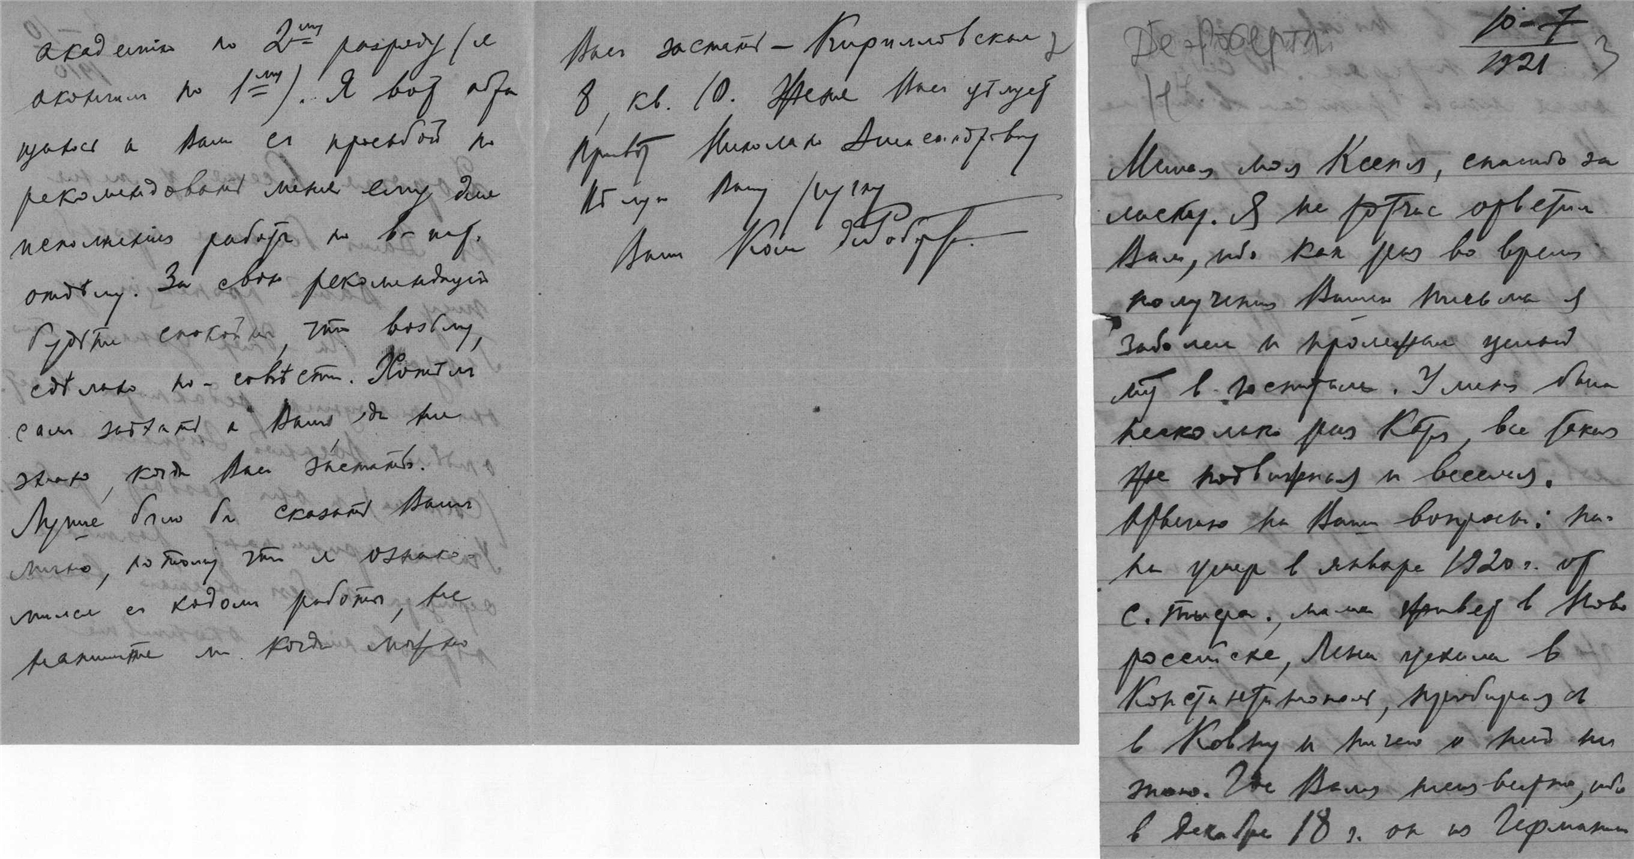 академію по 2му разряду (я
окончил по 1му). Я вот обра
щаюсь к Вам съ просьбой по
рекомендовать меня ему для
исполненія работъ по в-
отдѣлу. За свою рекомендацію
будьте спокойны, что возьму,
сдѣлаю по-совѣсти. Хотѣлъ
самъ заѣхать к Вамъ, да не
знаю, когда Васъ застать.
Лучше было бы сказать Вамъ
лично, потому что я ознако-
мился съ ходомъ работы, не
напишите ли когда можно
Васъ застать – Кирилловская
8, кв. 10. Женя Васъ цѣлует
привѣт Николаю Александровичу
Цѣлую Вашу ручку
Ваш Коля де Роберти
Де-Роберти
Н
10-7
1921
3
Милая моя Ксеня, спасибо за
ласку. Я не тотчас ответил
Вам, ибо как раз во время
получения Вашего письма я
заболел и пролежал целый
м-ц в госпитале. У меня была
несколько раз Катя, все такая
же подвижная и веселая.
Отвечаю на Ваши вопросы: па-
па умер в январе 1920 г. от
с. тифа, мама живет в Ново
российске, Лена уехала в
Константинополь, пробираясь
в Ковну и ничего о ней не
знаю. Где Ваня неизвестно, ибо
в декабре 18 г. он из Германии